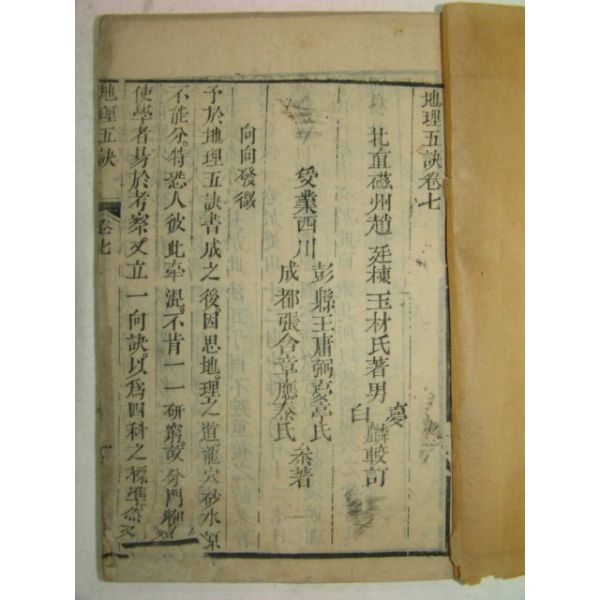 地理五訣卷七
北直磁州趙廷棟玉材氏著男夢白麟較訂
受業西川彭縣王庸弼豪亭氏成都張含章應泰氏叅著
向向發微
予於地理五訣書成之後因思地理之道龍穴砂水原
不能分特恐人彼此牽混不肯一一研窮故分門別
使學者易於考察又立一向訣以爲四科之標準
地理五訣 卷七